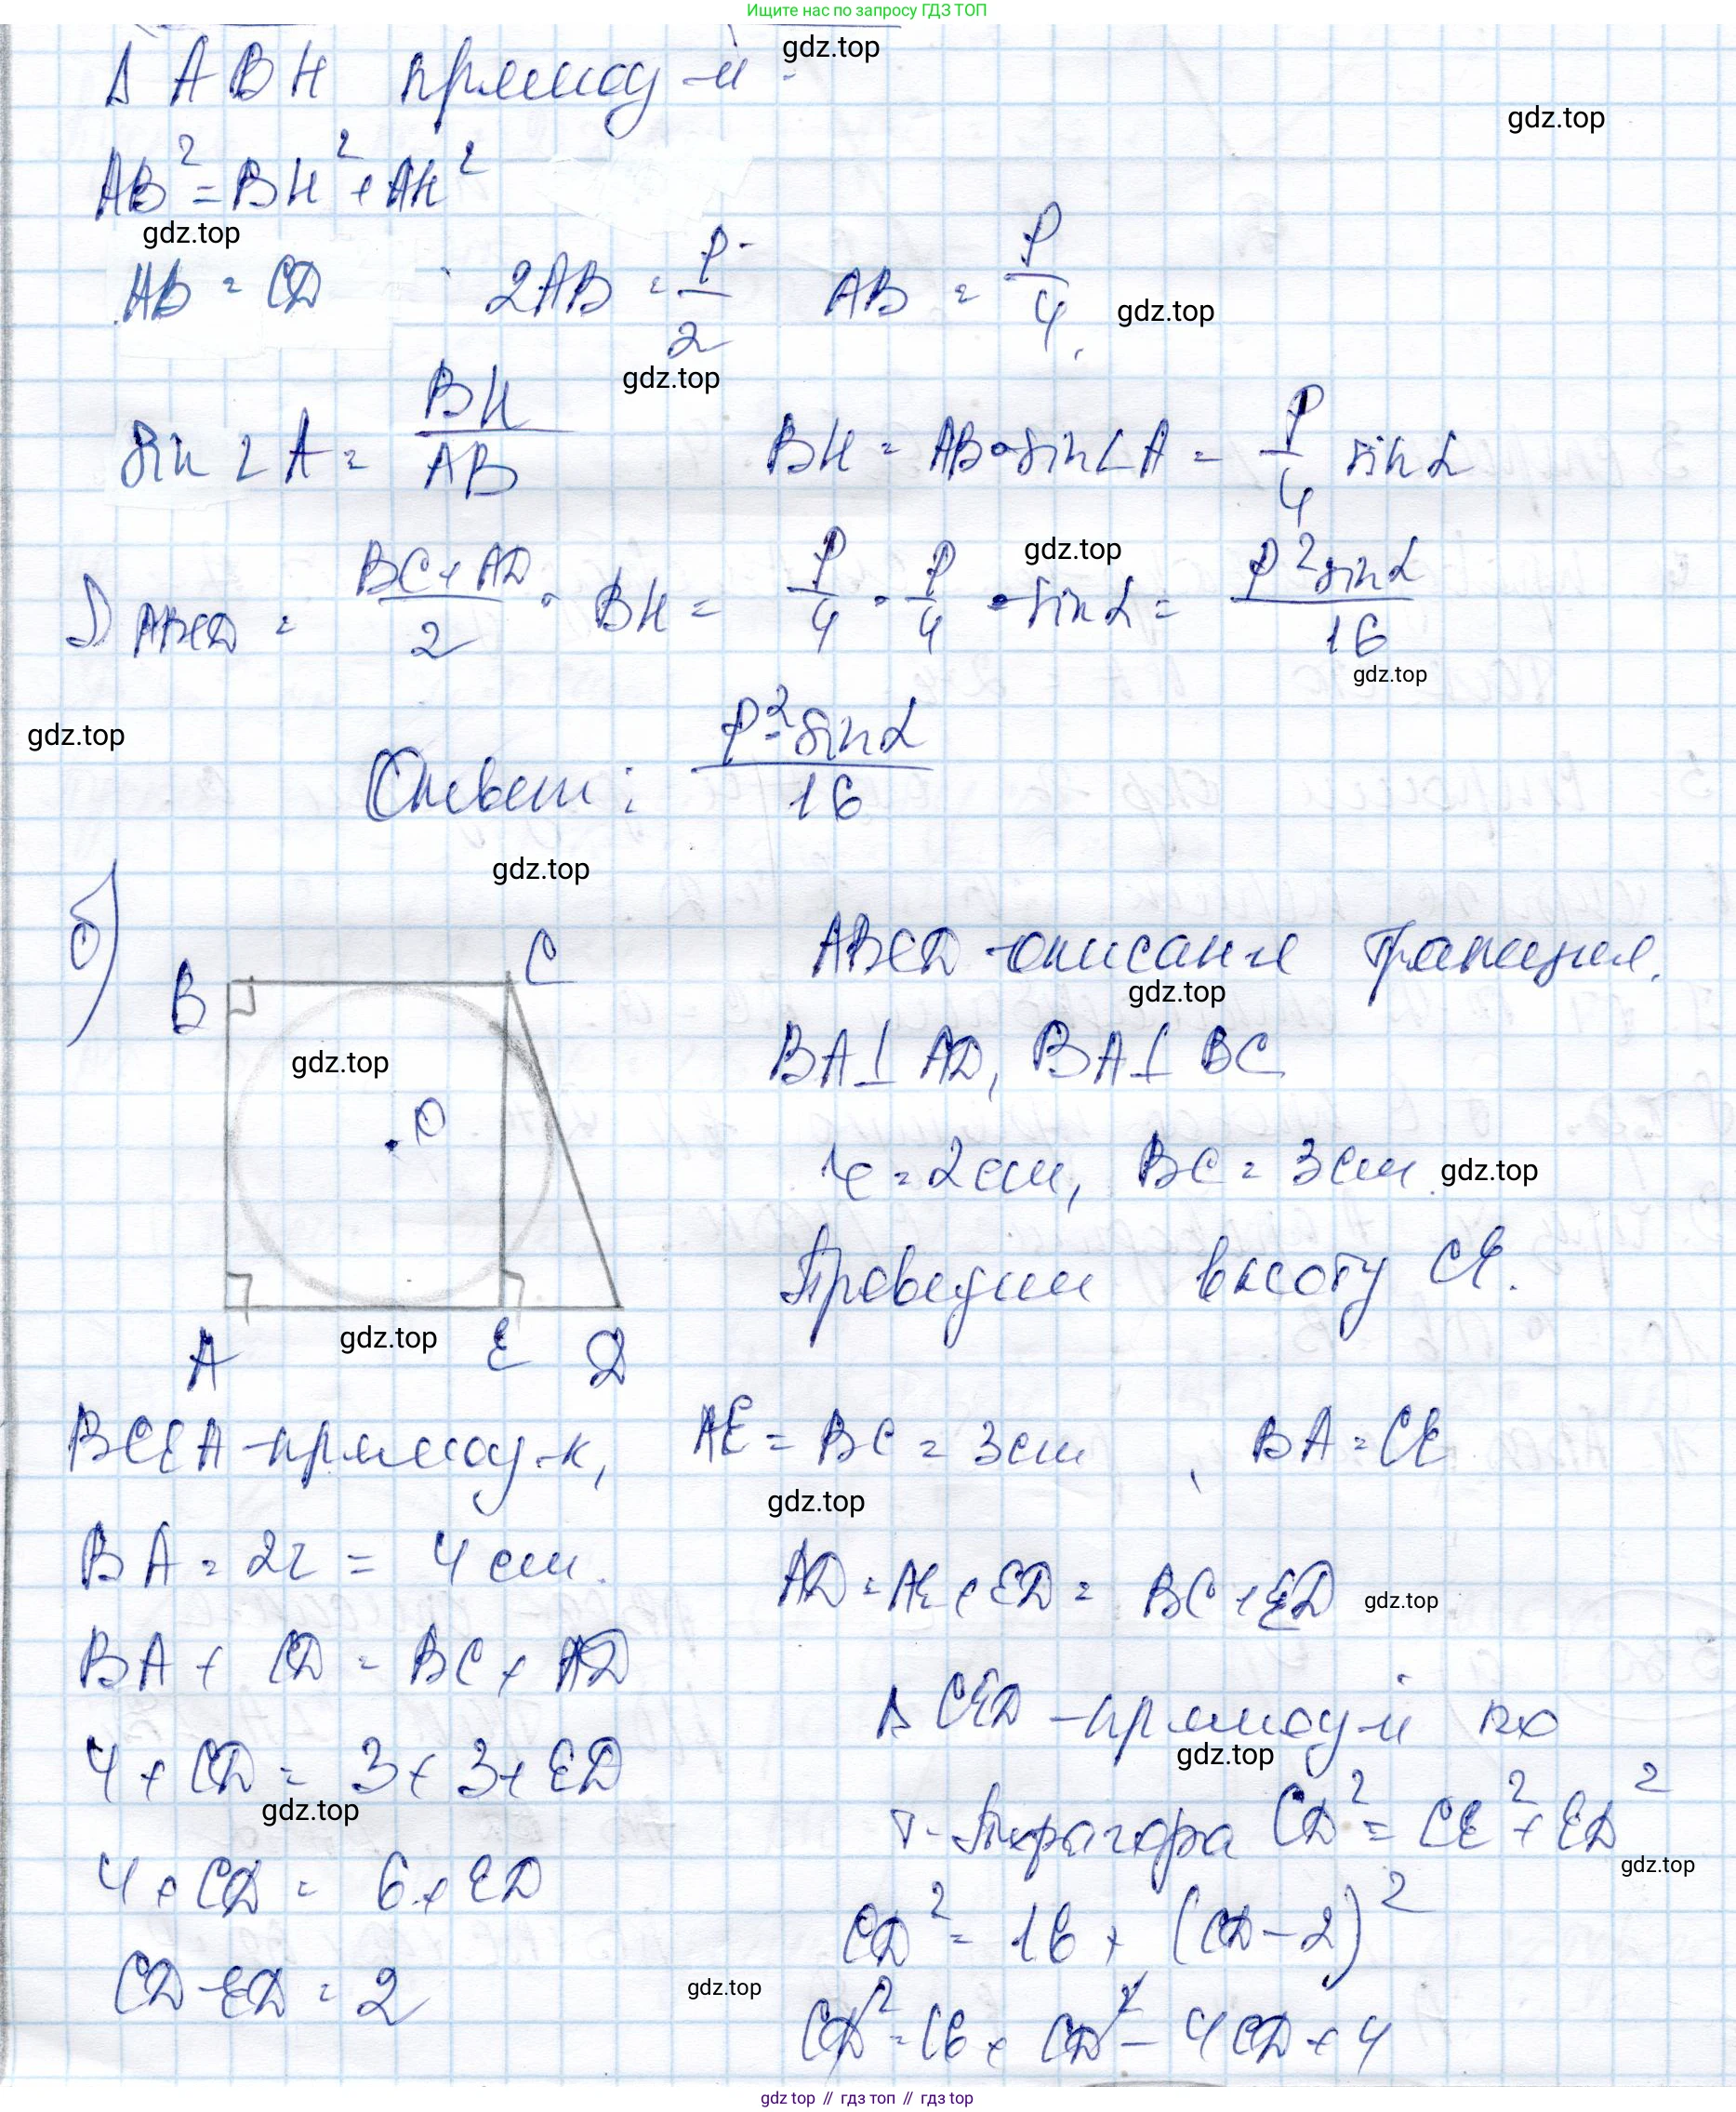 Ищите нас по запросу ГДЗ ТОП
gdz.top
Δ ABH прямоуг-й
gdz.top
AB² = BH² + AH²
gdz.top
AB = CD 2AB = P/2 AB = P/4
gdz.top
gdz.top
sin ∠A = BH/AB BH = AB • sin∠A = P/4 sin α
gdz.top
S ABCD = (BC + AD)/2 • BH = P/4 • P/4 • sin α = P² sin α/16
gdz.top
gdz.top
Ответ: P² sin α/16
gdz.top
б) ABCD - описания трапеция.
B C
gdz.top
BA ⊥ AD, BA ⊥ BC
gdz.top
O
r = 2 см, BC = 3 см
gdz.top
Проведем высоту CE.
gdz.top
A E D
BCEA - прямоуг-к, AE = BC = 3 см, BA = CE
gdz.top
BA = 2r = 4 см.
AD = AE + ED = BC + ED
gdz.top
BA + CD = BC + AD
Δ CED - прямоуг-й по
4 + CD = 3 + 3 + ED
gdz.top
gdz.top
т. Пифагора CD² = CE² + ED²
gdz.top
4 + CD = 6 + ED
CD² = 16 + (CD - 2)²
CD - ED = 2
gdz.top
CD² = 16 + CD² - 4CD + 4
gdz top // гдз топ // гдз top